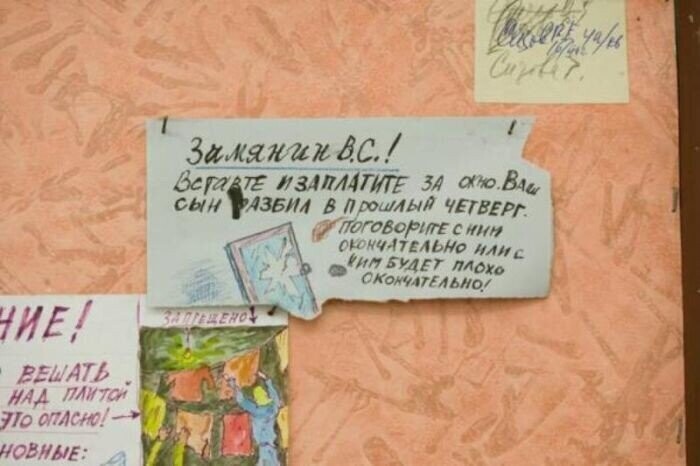 Сизова Г.
Зимянин В.С.!
Вставте и заплатите за окно. Ваш
сын разбил в прошлый четверг.
поговорите с ним
окончательно или с
ким будет плохо
окончательно!
НИЕ!
ЗАПРЕЩЕНО
ВЕШАТЬ
НАД ПЛИТОЙ
ЭТО ОПАСНО!
НОВНЫЕ: